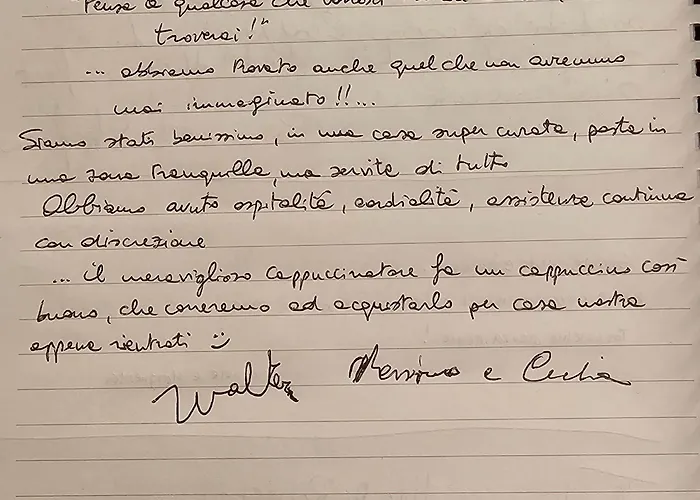 Pensa a qualcosa che vorresti
troverai!"
... abbiamo trovato anche quel che non avremmo
mai immaginato!!...
Siamo stati benissimo, in una casa super curata, posta in
una zona tranquilla, ma servita di tutto
Abbiamo avuto ospitalità, cordialità, assistenza continua
con discrezione
... il meraviglioso cappuccinatore fa un cappuccino così
buono, che correremo ad acquistarlo per casa nostra
appena rientrati :)
Walter Massimo e Cecilia